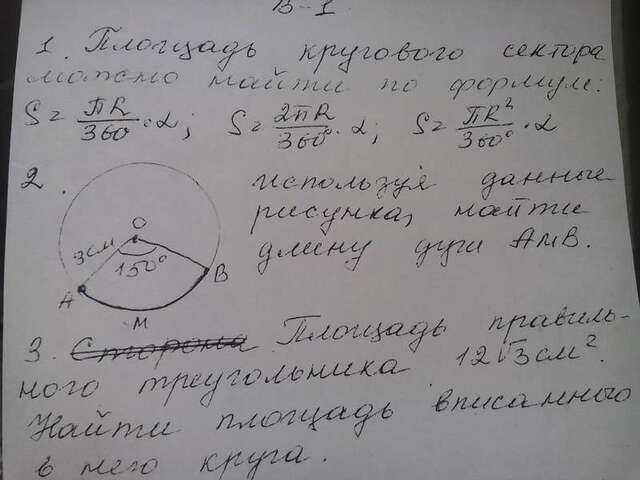 В-1
1. Площадь кругового сектора
можно найти по формуле:
S = πR/360° · α; S = 2πR/360° · α; S = πR²/360° · α
2. используя данные
рисунка, найти
длину дуги AmB.
O
3см
150°
A
B
M
3. Сторона Площадь правиль-
ного треугольника 12√3 см².
Найти площадь вписанного
в него круга.